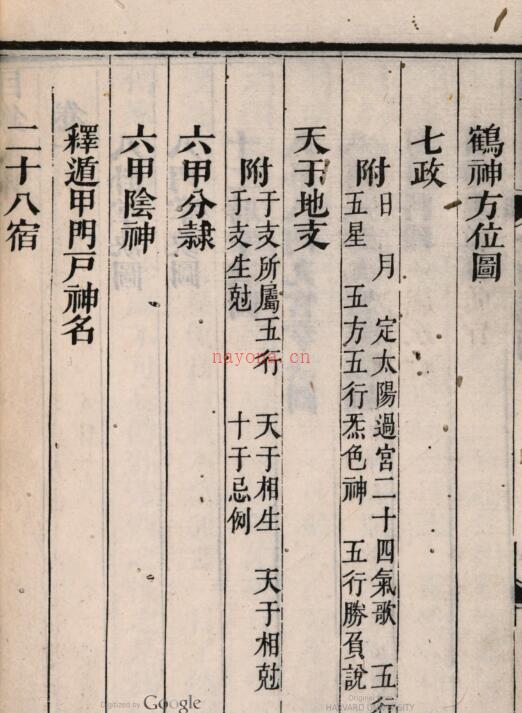 鶴神方位圖
七政
附日 月 定太陽過宮二十四氣歌 五行
五星 五方五行炁色神 五行勝負說
天干地支
附干支所屬五行 天干相生 天干相尅
干支生尅 十干忌例
六甲分隷
六甲陰神
釋遁甲門戸神名
二十八宿
nayona.cn
Digitized by Google
Original from
HARVARD UNIVERSITY